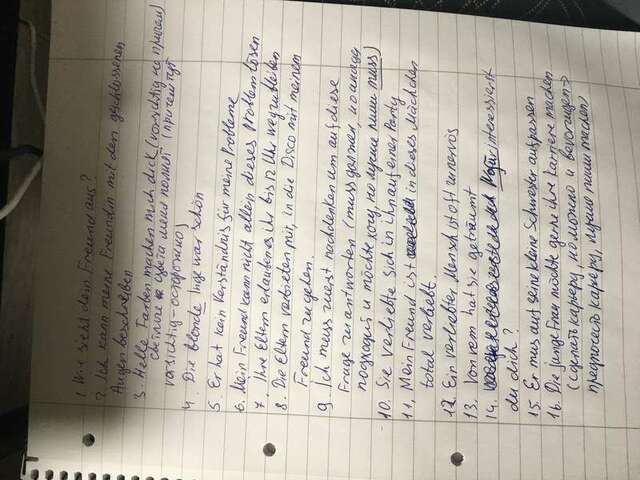 1. Wie sieht dein Freund aus?
2. Ich kann meine Freundin mit den geschlossenen
Augen beschreiben
3. Helle Farben machen mich dick (vorsichtig не причем)
светлые цвета меня полнят (причем тут
vorsichtig - осторожно)
4. Die blonde Inge war schön
5. Er hat kein Verständnis für meine Probleme
6. Mein Freund kann nicht allen dieses Problem lösen
7. Ihre Eltern erlauben es ihr bis 12 Uhr wegzubleiben
8. Die Eltern verbieten mir, in die Disco mit meinem
Freund zu gehen.
9. Ich muss zuerst nachdenken um auf diese
Frage zu antworten (muss должен, но иногда
подходит и möchte хочу, но лучше пиши muss)
10. Sie verliebte sich in ihn auf einer Party
11. Mein Freund ist in dieses Mädchen
total verliebt.
12. Ein verliebter Mensch ist oft nervös
13. Von wem hat sie geträumt
14. Wofür interessierst
du dich?
15. Er mus auf seine kleine Schwester aufpassen
16. Die junge Frau möchte gerne ihre Karriere machen
(сделать карьеру, но можно и bevorzugen ->
предпочесть карьеру, лучше пиши machen)